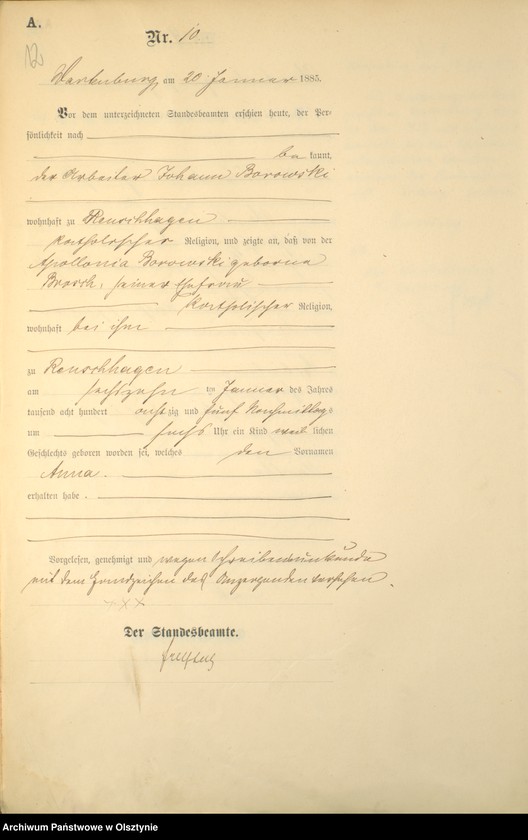 A.
Nr. 10
Wartenburg, am 20 Januar 1885.
Vor dem unterzeichneten Standesbeamten erschien heute, der Per-
sönlichkeit nach
be kannt,
der Arbeiter Johann Borowski
wohnhaft zu Reuschhagen
katholischer Religion, und zeigte an, daß von der
Apollonia Borowski geborne
seiner Ehefrau
katholischer Religion,
wohnhaft bei ihm
zu Reuschhagen
am sechszehn ten Januar des Jahres
tausend acht hundert acht zig und fünf Nachmittags
um sechs Uhr ein Kind weib lichen
Geschlechts geboren worden sei, welches den Vornamen
Anna.
erhalten habe.
Vorgelesen, genehmigt und wegen Schreibensunkunde
mit dem Handzeichen des Anzeigenden versehen.
XXX
Der Standesbeamte.
Archiwum Państwowe w Olsztynie